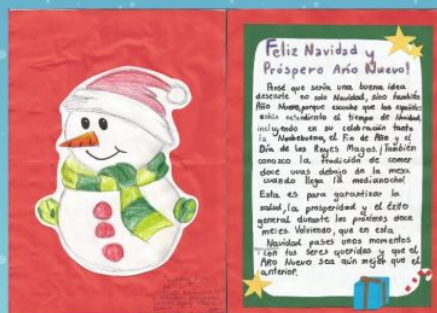 Feliz Navidad y
Próspero Año Nuevo!
Pensé que sería una buena idea
desearte no solo Navidad, sino también
Año Nuevo, porque escuché que los españoles
están extendiendo el tiempo de Navidad,
incluyendo en su celebración tanto
la Nochebuena, el Fin de Año y el
Día de los Reyes Magos. ¡También
conozco la tradición de comer
doce uvas debajo de la mesa
cuando llega la medianoche!
Esta es para garantizar la
salud, la prosperidad y el éxito
general durante los próximos doce
meses. Volviendo, que en esta
Navidad pases unos momentos
con tus seres queridos y que el
Año Nuevo sea aún mejor que el
anterior.